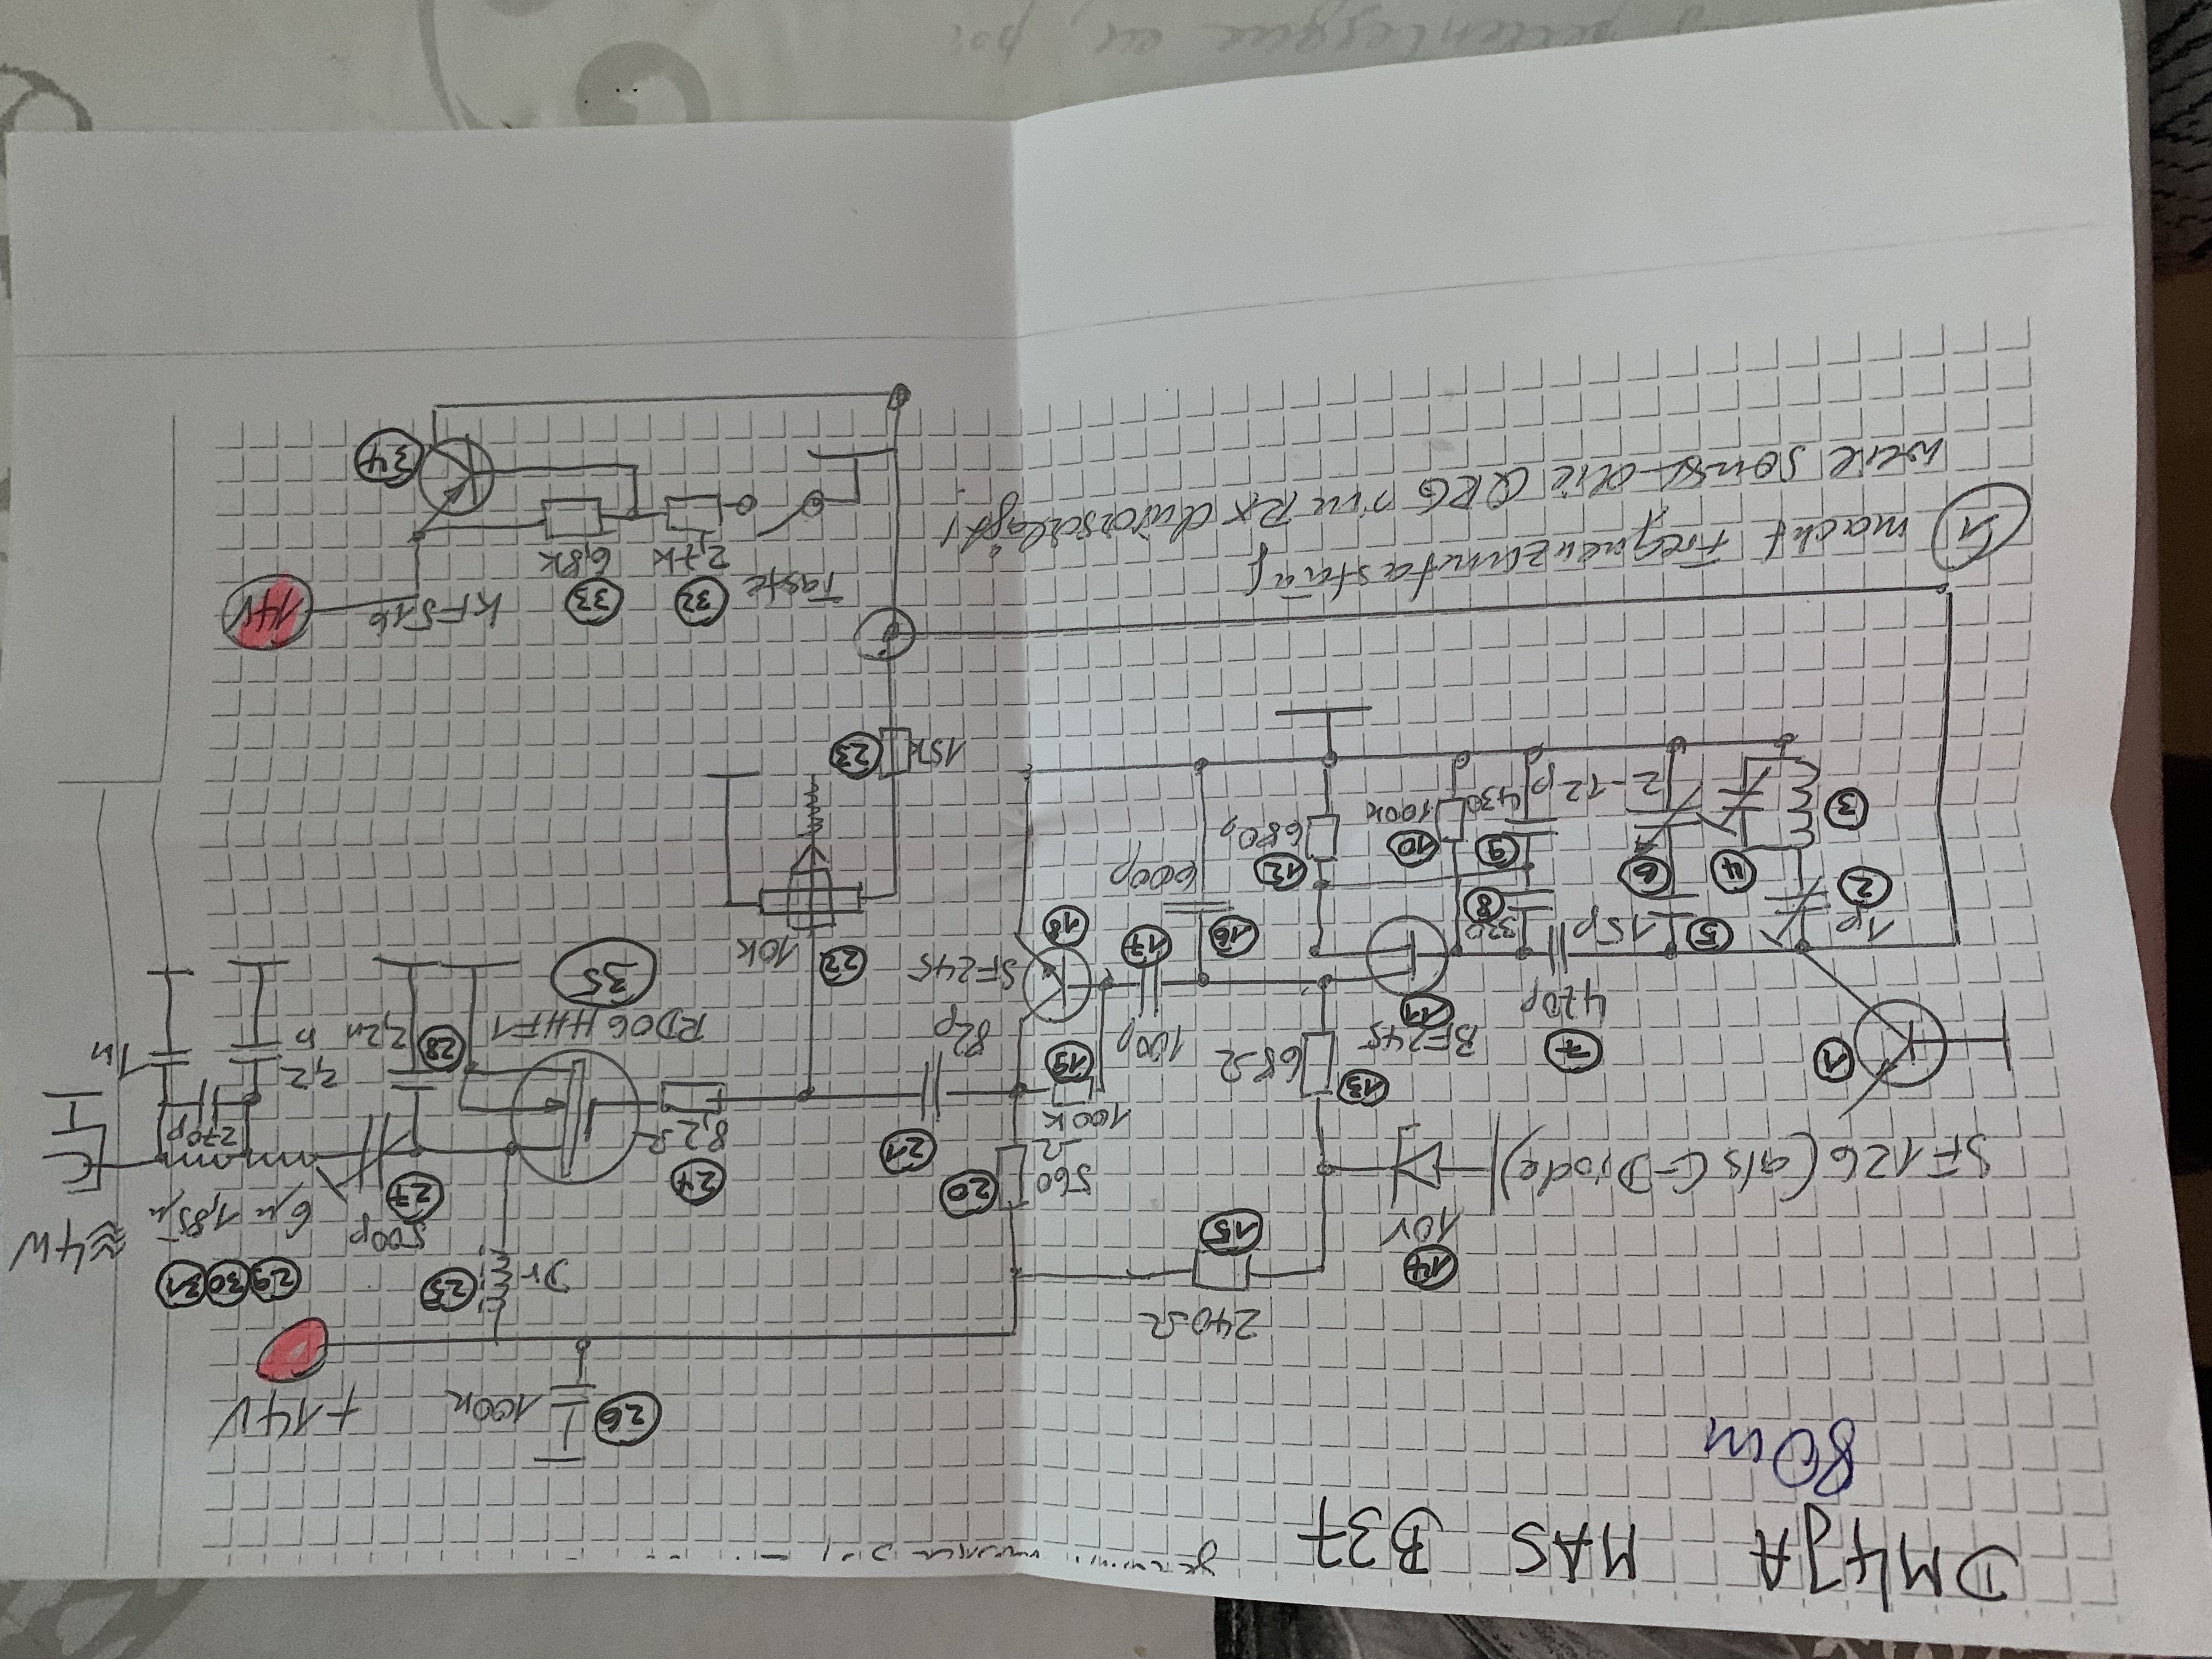 DM4JA MAS B37
80m
+14V
100n
26
240Ω
15
14
10V
SF126 (als C-Diode)
≈4W
31 30 29
1,85µ
6µ
500p
27
25
Dr
20
560
Ω
21
24
8,2Ω
13
68Ω
1
7
470p
270p
1n
2,2
n
2,2n
28
RD06HHF1
35
82p
100k
19
100p
17
BF245
11
SF245
18
16
22
10k
600p
12
680
10
100k
8
330
9
430
15p
5
6
2-12p
4
2
1p
3
23
15k
14V
KF516
33
6,8k
32
2,7k
Taste
34
1 macht Frequenzumtastung
weil sonst die QRG im RX durchschlägt!